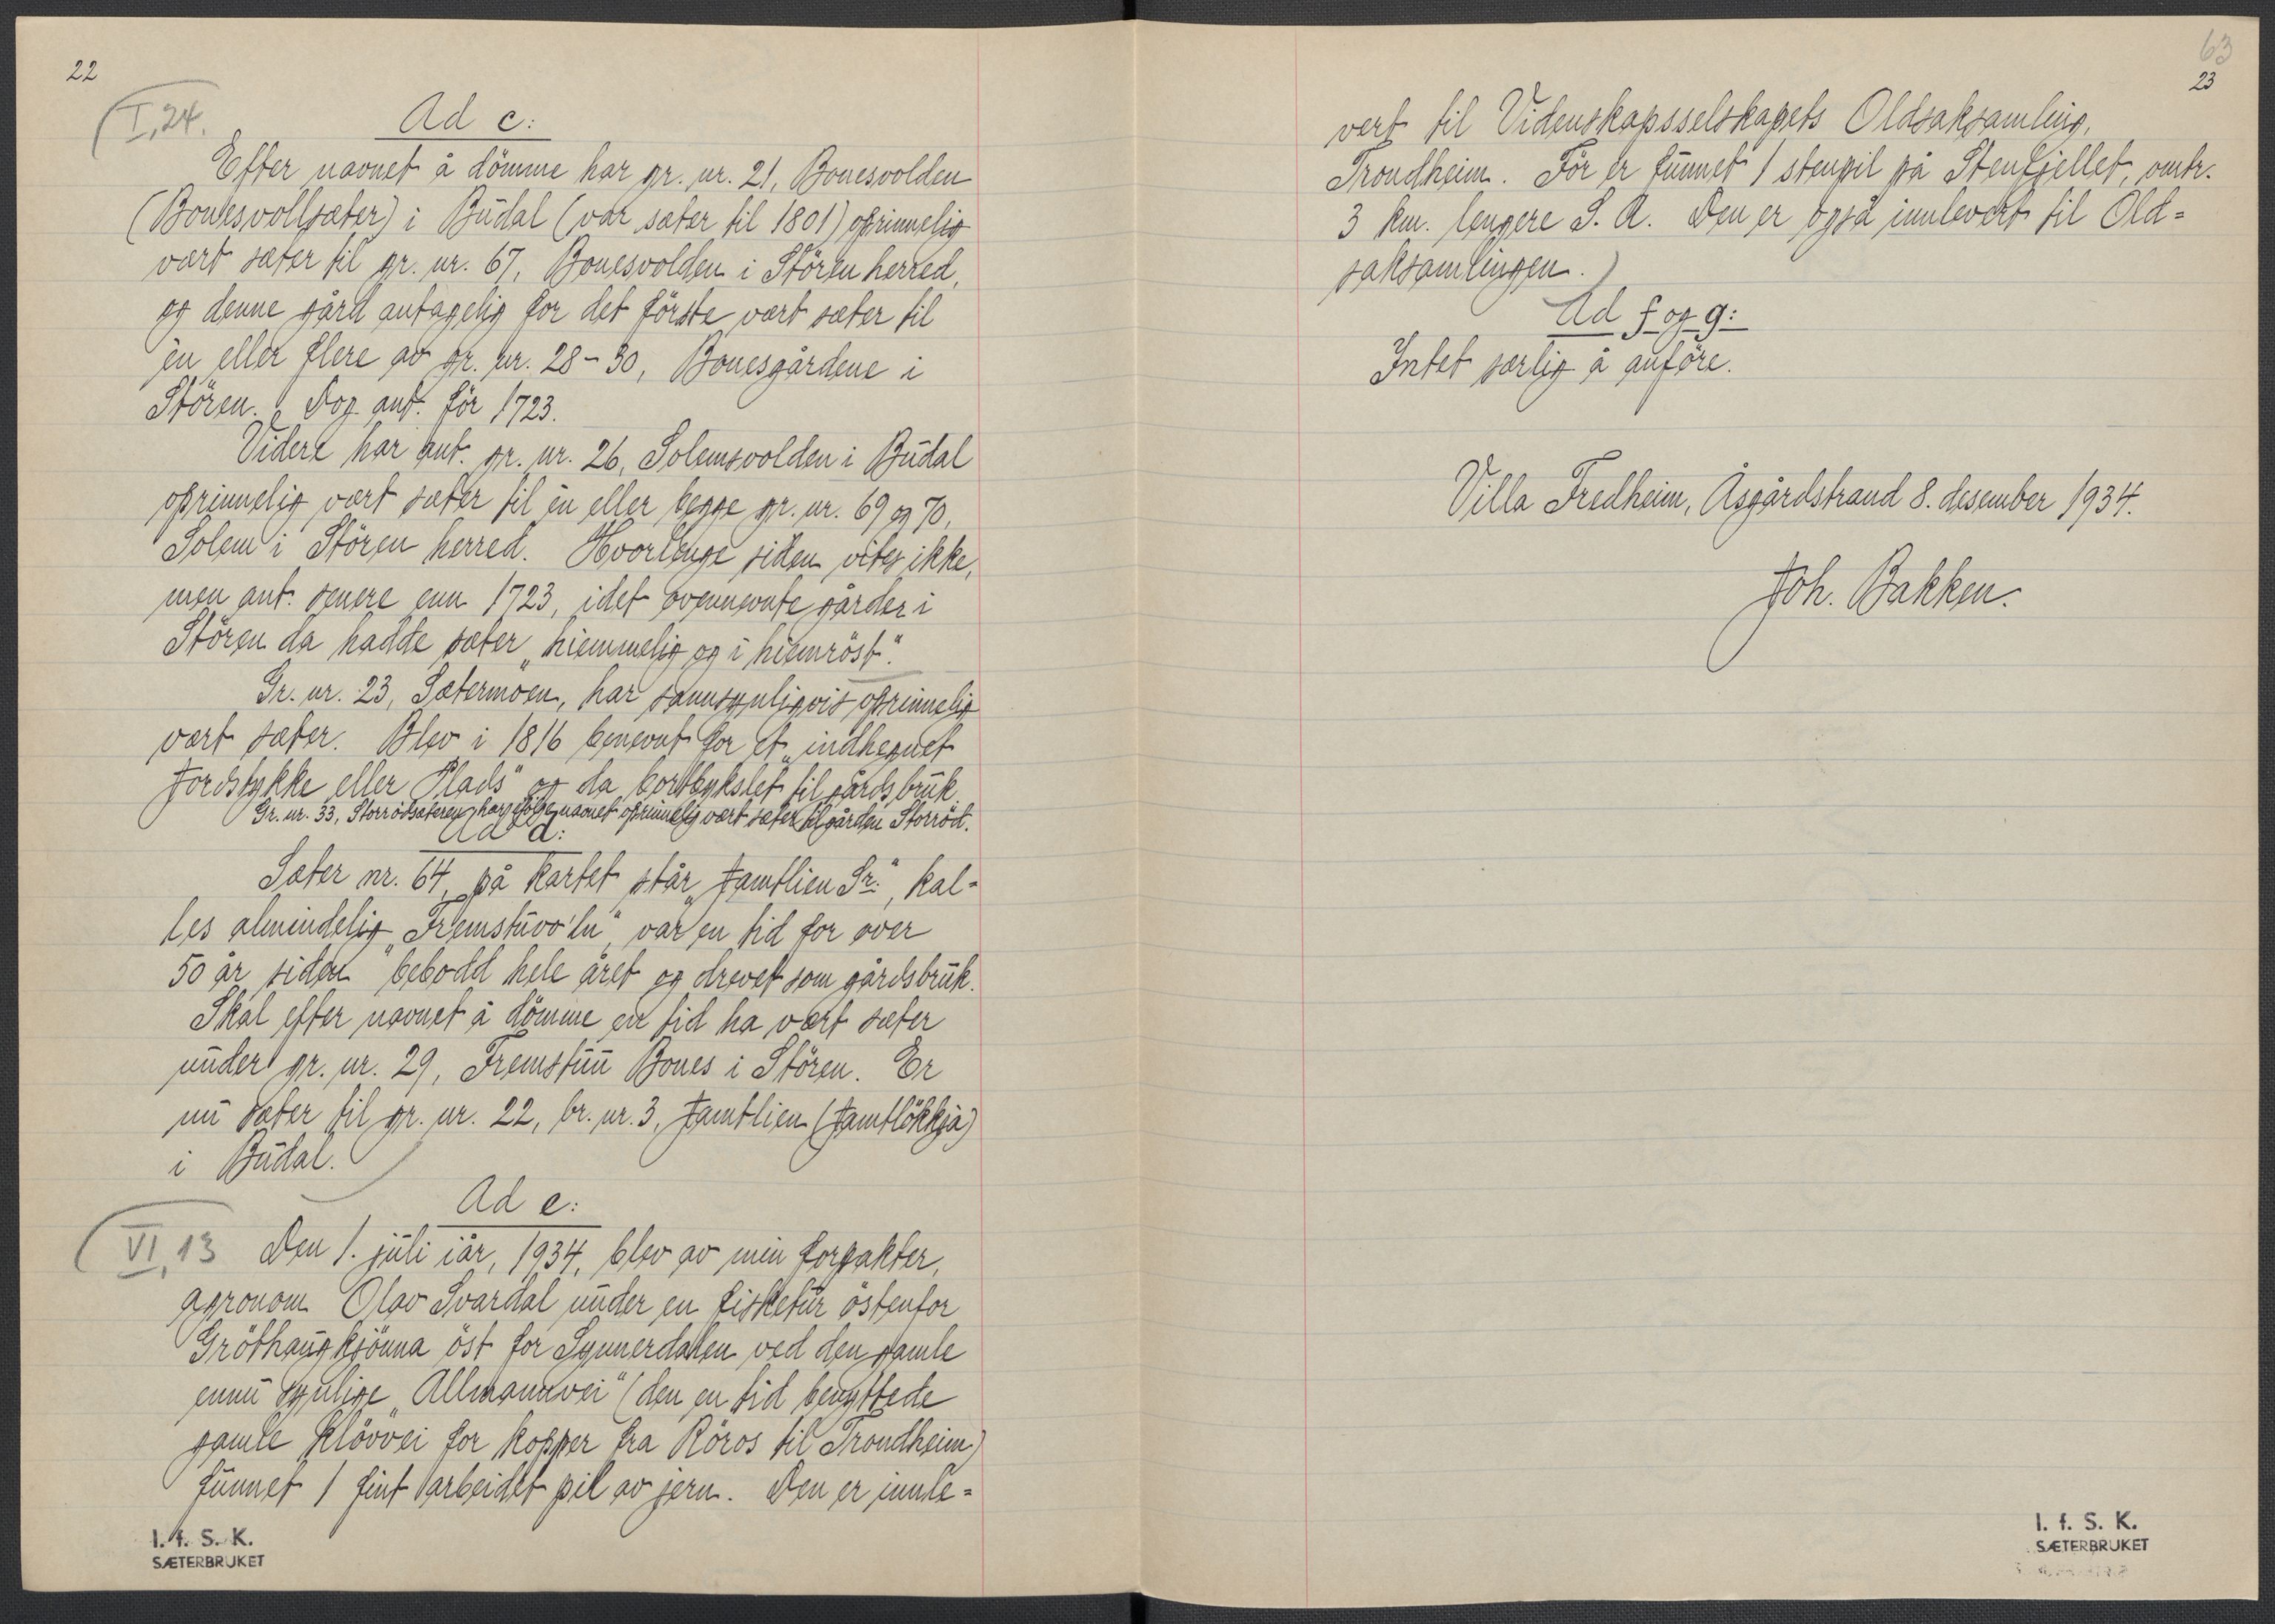 22
I, 24.
Ad c:
Efter navnet å dömme har gr. nr. 21, Bonesvolden
(Bonesvollsæter) i Budal (var sæter til 1801) oprinnelig
vært sæter til gr. nr. 67, Bonesvolden i Stören herred,
og denne gård antagelig for det förste vært sæter til
én eller flere av gr. nr. 28-30, Bonesgårdene i
Stören. Dog ant. för 1723.
Videre har ant. gr. nr. 26, Solemsvolden i Budal
oprinnelig vært sæter til én eller begge gr. nr. 69 og 70,
Solem i Stören herred. Hvorlenge siden vites ikke,
men ant. senere enn 1723, idet ovennevnte gårder i
Stören da hadde sæter „hiemmelig og i hiemröst“.
Gr. nr. 23, Sætermoen, har sannsynligvis oprinnelig
vært sæter. Blev i 1816 benevnt for et „indhegnet
Jordstykke eller Plads“ og da bortbykslet til gårdsbruk.
Gr. nr. 33, Storrödsæteren, har ifölge navnet oprinnelig vært sæter til gården Storröd.
Ad d:
Sæter nr. 64, på kartet står „Jamtlien Sr.“, kal-
les almindelig „Fremstuvo'ln“, var en tid for over
50 år siden bebodd hele året og drevet som gårdsbruk.
Skal efter navnet å dömme en tid ha vært sæter
under gr. nr. 29, Fremstuu Bones i Stören. Er
nu sæter til gr. nr. 22, br. nr. 3, Jamtlien (Jamtlökkja)
i Budal.
Ad e:
VI, 13
Den 1. juli iår, 1934, blev av min forpakter,
agronom Olav Svardal under en fisketur östenfor
Gröthaugkjönna öst for Synnerdalen ved den gamle
ennu synlige „Allmannvei“ (den en tid benyttede
gamle klövvei for kopper fra Röros til Trondheim)
funnet 1 fint arbeidet pil av jern. Den er innle-
I. f. S. K.
SÆTERBRUKET
63
23
vert til Videnskapsselskapets Oldsaksamling,
Trondheim. För er funnet 1 stenpil på Stenfjellet, omtr.
3 km. lengere S. A. Den er også innlevert til Old-
saksamlingen.
Ad f og g:
Intet særlig å anföre.
Villa Fredheim, Åsgårdstrand 8. desember 1934.
Joh. Bakken.
I. f. S. K.
SÆTERBRUKET